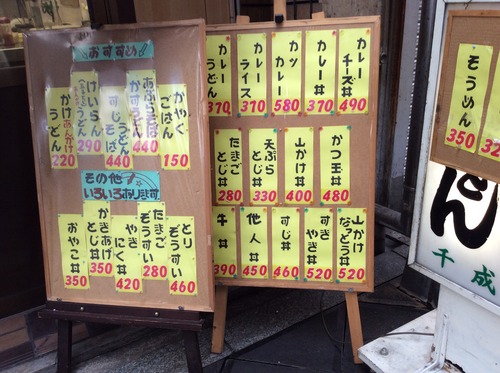 おすすめ
かやく
ごはん
150
あぶらそば
かすうどん
440
すじそば
うどん
440
けいらん
うどん
290
かけあんかけ
うどん
220
その他
いろいろあります
とり
ぞうすい
460
たまご
ぞうすい
280
やき
にく丼
420
かきあげ
とじ丼
350
おやこ丼
350
カレー
チーズ丼
490
カレー丼
370
カツ
カレー
580
カレー
ライス
370
カレー
うどん
370
かつ玉丼
480
山かけ丼
400
天ぷら
とじ丼
330
たまご
とじ丼
280
山かけ
なっとう丼
520
すき
やき丼
520
すじ丼
460
他人丼
450
牛丼
390
そうめん
350
どん
千成